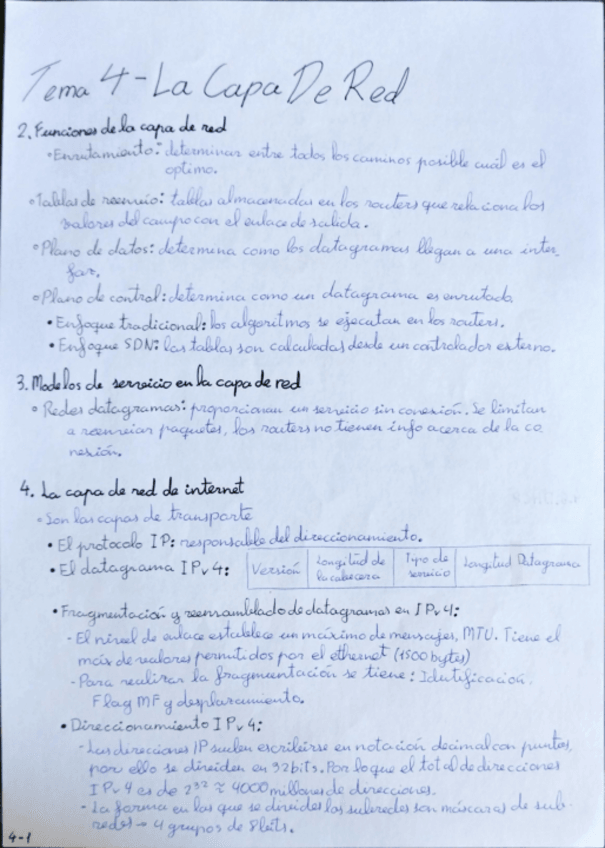 Tema 4 - La Capa De Red
2. Funciones de la capa de red
• Enrutamiento: determinar entre todos los caminos posible cuál es el
óptimo.
• Tablas de reenvío: tablas almacenadas en los routers que relaciona los
valores del campo con el enlace de salida.
• Plano de datos: determina como los datagramas llegan a una inter-
faz.
• Plano de control: determina como un datagrama es enrutado.
• Enfoque tradicional: los algoritmos se ejecutan en los routers.
• Enfoque SDN: las tablas son calculadas desde un controlador externo.
3. Modelos de servicio en la capa de red
• Redes datagramas: proporcionan un servicio sin conexión. Se limitan
a reenviar paquetes, los routers no tienen info acerca de la co
nexión.
4. La capa de red de internet
• Son las capas de transporte
• El protocolo IP: responsable del direccionamiento.
• El datagrama IPv4: Versión Longitud de la cabecera Tipo de servicio Longitud Datagrama
• Fragmentación y reensamblado de datagramas en IPv4:
- El nivel de enlace establece un máximo de mensajes, MTU. Tiene el
máx de valores permitidos por el ethernet (1500 bytes)
- Para realizar la fragmentación se tiene: Identificación,
Flag MF y desplazamiento.
• Direccionamiento IPv4:
- Las direcciones IP suelen escribirse en notación decimal con puntos,
por ello se dividen en 32 bits. Por lo que el total de direcciones
IPv4 es de 2³² ≈ 4000 millones de direcciones.
- La forma en las que se divides las subredes son máscaras de sub-
redes → 4 grupos de 8 bits.
4-1